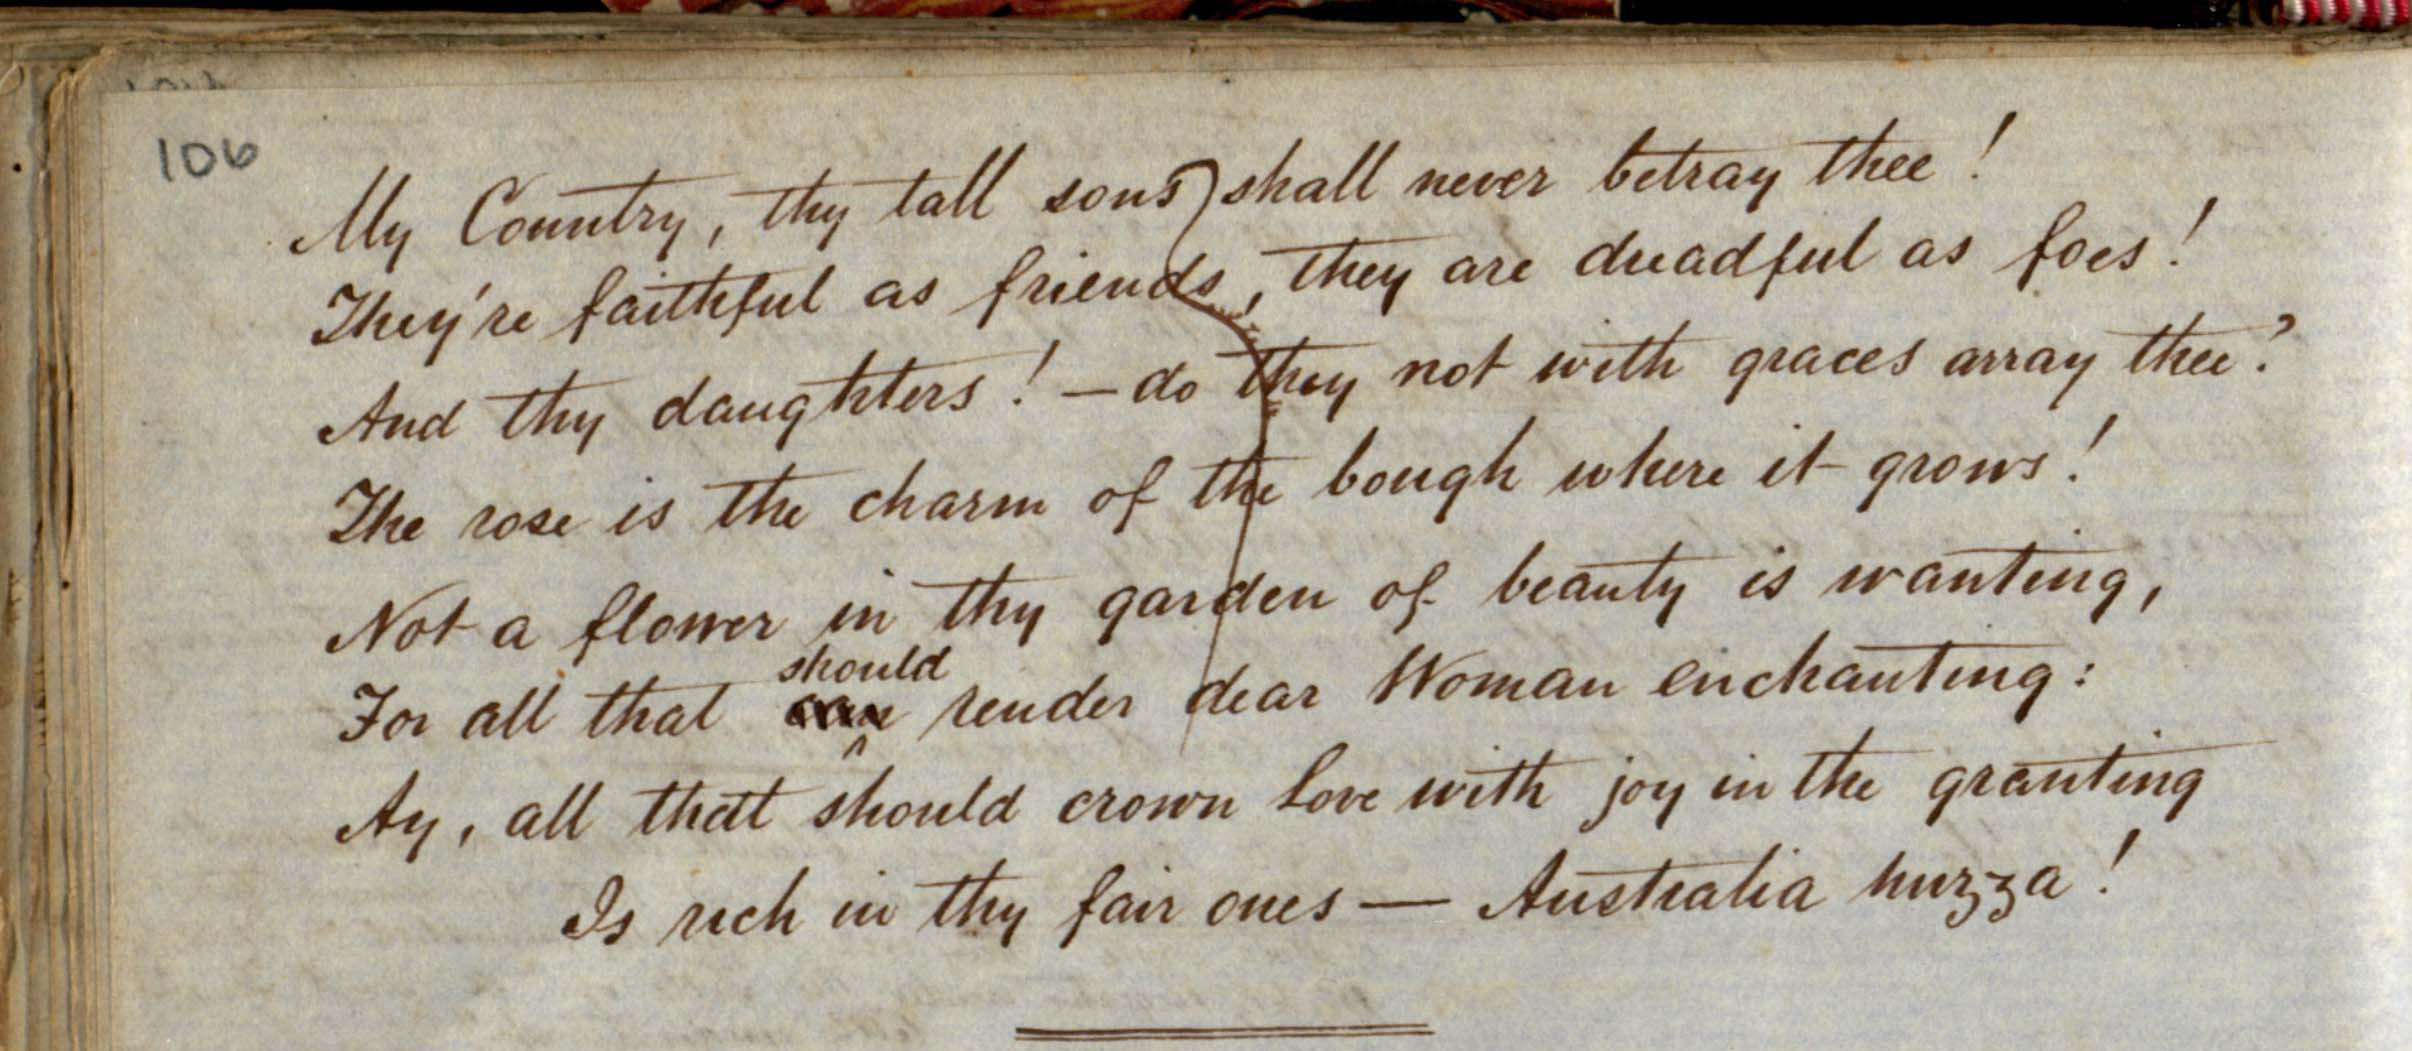 106
My Country, thy tall sons shall never betray thee!
They're faithful as friends, they are dreadful as foes!
And thy daughters! — do they not with graces array thee?
The rose is the charm of the bough where it grows!
Not a flower in thy garden of beauty is wanting,
should
For all that render dear Woman enchanting:
Ay, all that should crown love with joy in the granting
Is rich in thy fair ones — Australia huzza!